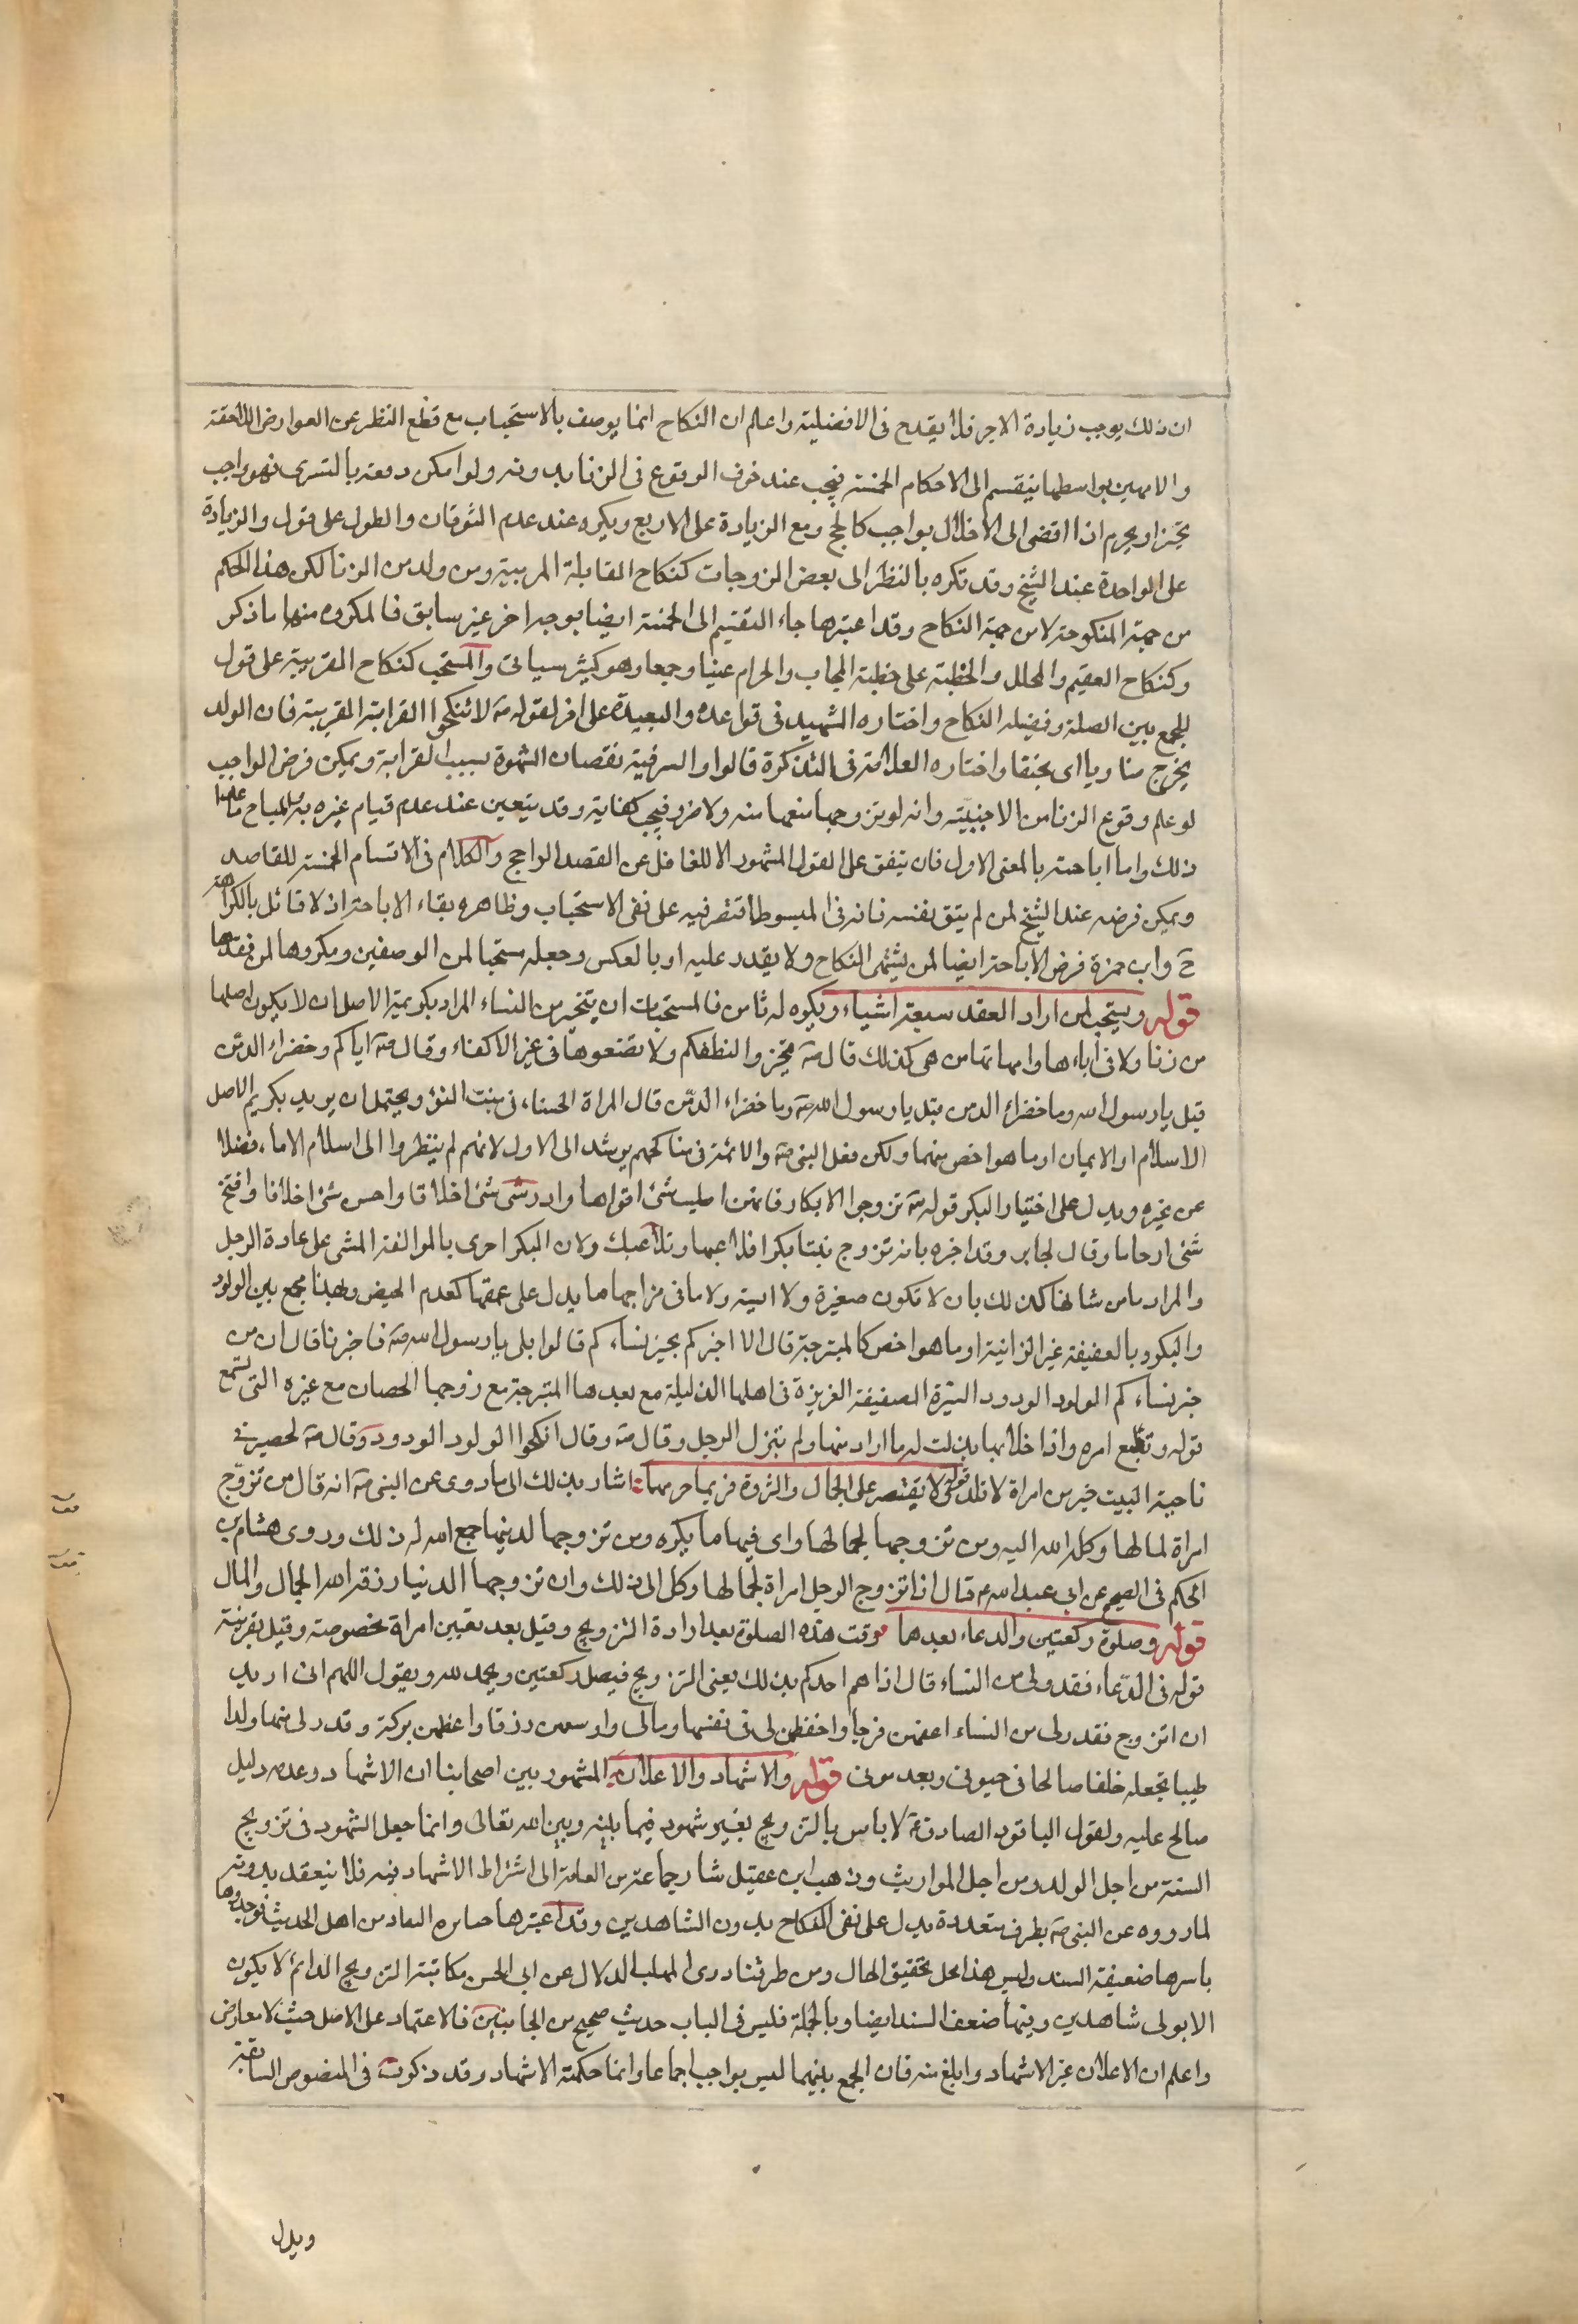 ان ذلك يوجب زيادة الاجر فلا يقدح فى الافضلية واعلم ان النكاح انما يوصف بالاستحباب مع قطع النظر عن العوارض اللاحقة
والا فهو بواسطتها ينقسم الى الاحكام الخمسة فيجب عند خوف الوقوع فى الزنا بدونه ولو امكن دفعه بالتسرى فهو واجب
مخير او يحرم اذا افضى الى الاخلال بواجب كالحج ومع الزيادة على الاربع ويكره عند عدم التوقان والطول على قول والزيادة
على الواحدة عند الشيخ وقد تكره بالنظر الى بعض الزوجات كنكاح القابلة المربية ومن ولد من الزنا لكن هذا الحكم
من جهة المنكوحة لا من جهة النكاح وقد اعتبرها جاء التقسيم الى الخمسة ايضا بوجه اخر غير سابق فالمكروه منها ما ذكر
وكنكاح العقيم والمحلل والخطبة على خطبة المجاب والحرام عينا وجمعا وهو كثير سياتى والمستحب كنكاح القريبة على قول
للجمع بين الصلة وفضيلة النكاح واختاره الشهيد فى قواعده والبعيدة على اخر لقوله ص لا تنكحوا القرابة القريبة فان الولد
يخرج ضاويا اى نحيفا واختاره العلامة فى التذكرة قالوا والسر فيه نقصان الشهوة بسبب القرابة ويمكن فرض الواجب
لو علم وقوع الزنا من الاجنبية وانه لو تزوجها منعها منه ولا ضرر فيجب كفاية وقد يتعين عند عدم قيام غيره به والمباح ما عدا
ذلك واما اباحته بالمعنى الاول فان يتفق على القول المشهور الا للغافل عن القصد الراجح والكلام فى الاقسام الخمسة للقاصد
ويمكن فرضه عند الشيخ لمن لم يتق نفسه فانه فى المبسوط اقتصر فيه على نفى الاستحباب وظاهره بقاء الاباحة اذ لا قائل بالكراهة
ح وابن حمزة فرض الاباحة ايضا لمن يشتهى النكاح ولا يقدر عليه او بالعكس وجعله مستحبا لمن الوصفين ومكروها لمن فقدهما
قوله ويستحب لمن اراد العقد سبعة اشياء ويكره له ثامن فالمستحبات ان يتخير من النساء المراد بكريمة الاصل ان لا يكون اصلها
من زنا ولا فى اباءها وامهاتها من هى كذلك قال ص تخيروا لنطفكم ولا تضعوها فى غير الاكفاء وقال ص اياكم وخضراء الدمن
قيل يا رسول الله وما خضراء الدمن قيل يا رسول الله ص وما خضراء الدمن قال المراة الحسناء فى منبت السوء ويحتمل ان يريد بكريم الاصل
الاسلام او الايمان او ما هو اخص منهما ولكن فعل النبى ص والائمة فى مناكحهم يرشد الى الاول لانهم لم ينظروا الى اسلام الاباء فضلا
عن غيره ويدل على اختيار البكر قوله ص تزوجوا الابكار فانهن اطيب شئ افواها وادر شئ اخلافا واحسن شئ اخلاقا وافتخ
شئ ارحاما وقال لجابر وقد اخبره بانه تزوج ثيبا بكرا فلاعبها وتلاعبك ولان البكر احرى بالموالفة المشى على عادة الرجل
والمراد ما من شانها كذلك بان لا تكون صغيرة ولا ائسة ولا ما فى مزاجها ما يدل على عقمها كعدم الحيض وبهذا يجمع بين الولود
والبكر وبالعفيفة غير الزانية او ما هو اخص كالمتبرجة قال الا اخبركم بخير نساءكم قالوا بلى يا رسول الله ص فاخبرنا قال ان من
خير نساءكم الولود الودود الستيرة العفيفة العزيزة فى اهلها الذليلة مع بعلها المتبرجة مع زوجها الحصان مع غيره التى تسمع
قوله وتطيع امره واذا خلا بها بذلت له ما اراد منها ولم تتبزل الرجل وقال ص وقال انكحوا الولود الودود وقال ص لحصير فى
ناحية البيت خير من امراة لا تلد قوله لا يقتصر على الجمال والثروة فربما حرمهما اشار بذلك الى ما روى عن النبى ص انه قال من تزوج
امراة لمالها وكله الله اليه ومن تزوجها لجمالها راى فيها ما يكره ومن تزوجها لدينها جمع الله له ذلك وروى هشام بن
الحكم فى الصحيح عن ابى عبد الله ع قال اذا تزوج الرجل امراة لجمالها وكل الى ذلك وان تزوجها لدينها رزقه الله الجمال والمال
قوله وصلوة ركعتين والدعاء بعدها وقت هذه الصلوة بعد ارادة التزويج وقيل بعد تعيين امراة مخصوصة وقيل بقرينة
قوله فى الدعاء فقدر لى من النساء قال اذا هم احدكم بذلك يعنى التزويج فيصل ركعتين ويحمد لله ويقول اللهم انى اريد
ان اتزوج فقدر لى من النساء اعفهن فرجا واحفظهن لى فى نفسها ومالى واوسعهن رزقا واعظمهن بركة وقدر لى منها ولدا
طيبا تجعله خلفا صالحا فى حيوتى وبعد موتى قوله والاشهاد والاعلان المشهور بين اصحابنا ان الاشهاد وعدم دليل
صالح عليه ولقول الباقر والصادق ع لا باس بالتزويج بغير شهود فيما بينه وبين الله تعالى وانما جعل الشهود فى تزويج
السنة من اجل الولد ومن اجل المواريث وذهب ابن عقيل منا وجماعة من العامة الى اشتراط الاشهاد فيه فلا ينعقد بدونه
لما رووه عن النبى ص بطرق متعددة يدل على نفى النكاح بدون الشاهدين وقد اعتبرها مهره النقاد من اهل الحديث فوجدوها
باسرها ضعيفة السند وليس هذا محل تحقيق الحال ومن طرقنا روى المهلب الدلال عن ابى الحسن مكاتبة التزويج الدائم لا يكون
الا بولى وشاهدين وفيها ضعف السند ايضا وبالجملة فليس فى الباب حديث صحيح من الجانبين فالاعتماد على الاصل حيث لا معارض
واعلم ان الاعلان غير الاشهاد وابلغ منه فان الجمع بينهما ليس بواجب اجماعا وانما حكمة الاشهاد وقد ذكرت فى النصوص السابقة
ويدل